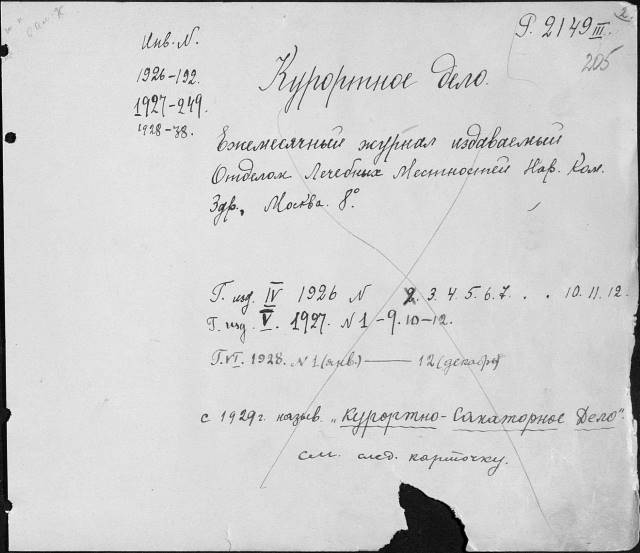 Р. 2149 III.
2
205
Инв. N.
1926-192.
1927-249.
1928-78.
Курортное дело.
Ежемесячный журнал издаваемый
Отделом Лечебных Местностей Нар. Ком.
Здр., Москва. 8°
Г. изд. IV 1926 N 2. 3. 4. 5. 6. 7. . . 10. 11. 12.
Г. изд. V. 1927. N 1-9. 10-12.
Г. VI. 1928. N 1 (янв.) — 12 (декабрь)
с 1929 г. назыв. „Курортно-Санаторное Дело"
см. след. карточку.